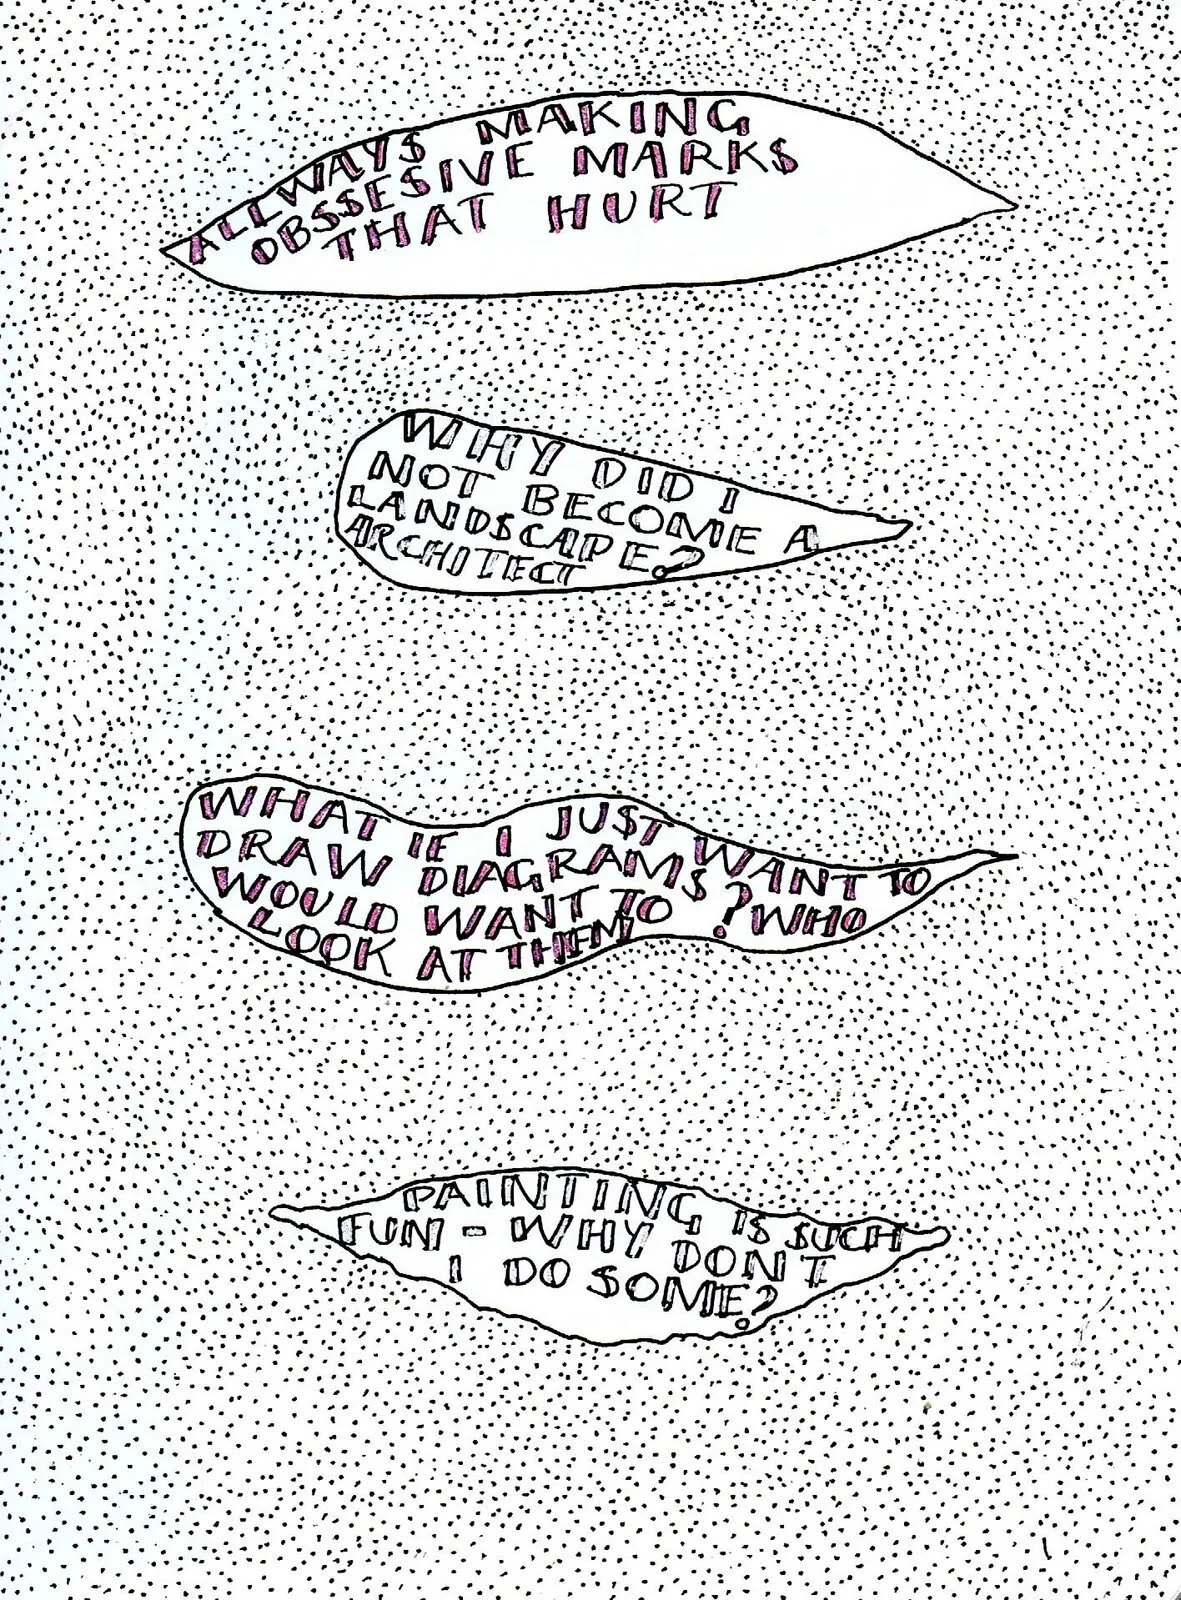 ALLWAYS MAKING
OBSSESIVE MARKS
THAT HURT
WHY DID I
NOT BECOME A
LANDSCAPE?
ARCHITECT
WHAT IF I JUST WANT TO
DRAW DIAGRAMS? WHO
WOULD WANT TO
LOOK AT THEM
PAINTING IS SUCH
FUN - WHY DON'T
I DO SOME?